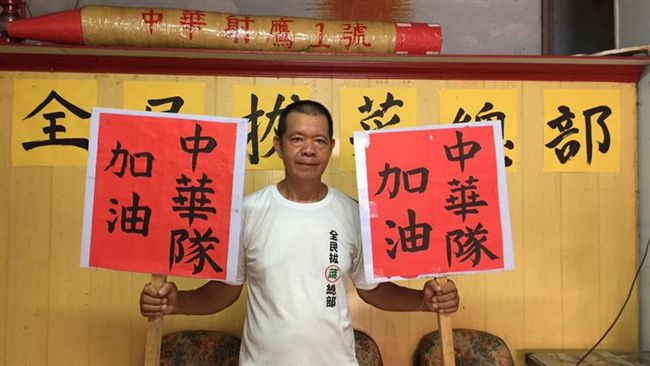 中華射鷹1號
全民拔菜總部
中華隊
加油
中華隊
加油
全民拔菜總部